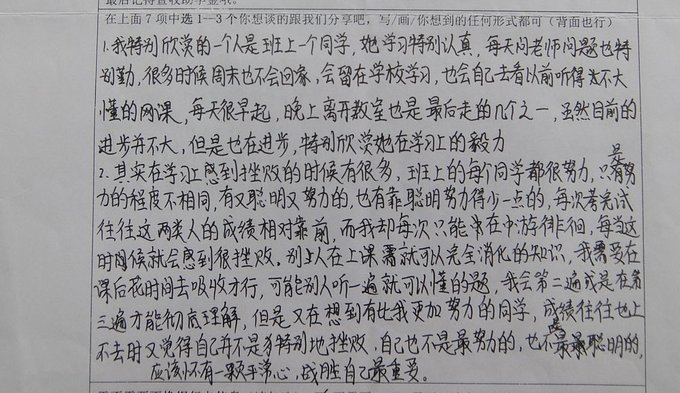 在上面7项中选1--3个你想谈的跟我们分享吧，写/画/你想到的任何形式都可（背面也行）
1.我特别欣赏的一个人是班上一个同学，她学习特别认真，每天问老师问题也特
别勤，很多时候周末也不会回家，会留在学校学习，也会自己去看以前听得不大
懂的网课，每天很早起，晚上离开教室也是最后走的几个之一，虽然目前的
进步并不大，但是也在进步，特别欣赏她在学习上的毅力
2.其实在学习上感到挫败的时候有很多，班上的每个同学都很努力，只是努
力的程度不相同，有又聪明又努力的，也有靠聪明努力得少一点的，每次考完试
往往这两类人的成绩相对靠前，而我却每次只能常在中游徘徊，每当这
时候就会感到很挫败。别人在上课就可以完全消化的知识，我需要在
课后花时间去吸收才行，可能别人听一遍就可以懂的题，我会第二遍或是在第
三遍才能彻底理解，但是又在想到有比我更加努力的同学，成绩往往也上
不去时又觉得自己并不是特别地挫败，自己也不是最努力的，也不是最聪明的，
应该怀有一颗平常心，战胜自己最重要。